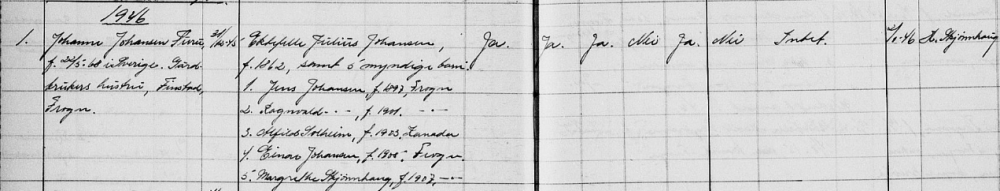 1946
1. Johanne Johansen Furu, 31/12-45 Ektefelle Julius Johansen, Ja. Ja. Ja. Nei Ja. Nei Intet. 2/1-46 H. Skjønnhaug
f. 24/5-68 i Sverige. Gård- f. 1862, samt 5 myndige barn
brukers hustru, Finstad, 1. Jens Johansen, f. 1897, Frogn
Frogn. 2. Ragnvald - " -, f. 1901. - " -
3. Alfild Solheim, f. 1903, Kanada
4. Einar Johansen, f. 1905, Frogn.
5. Margrethe Skjønnhaug, f. 1907, - " -